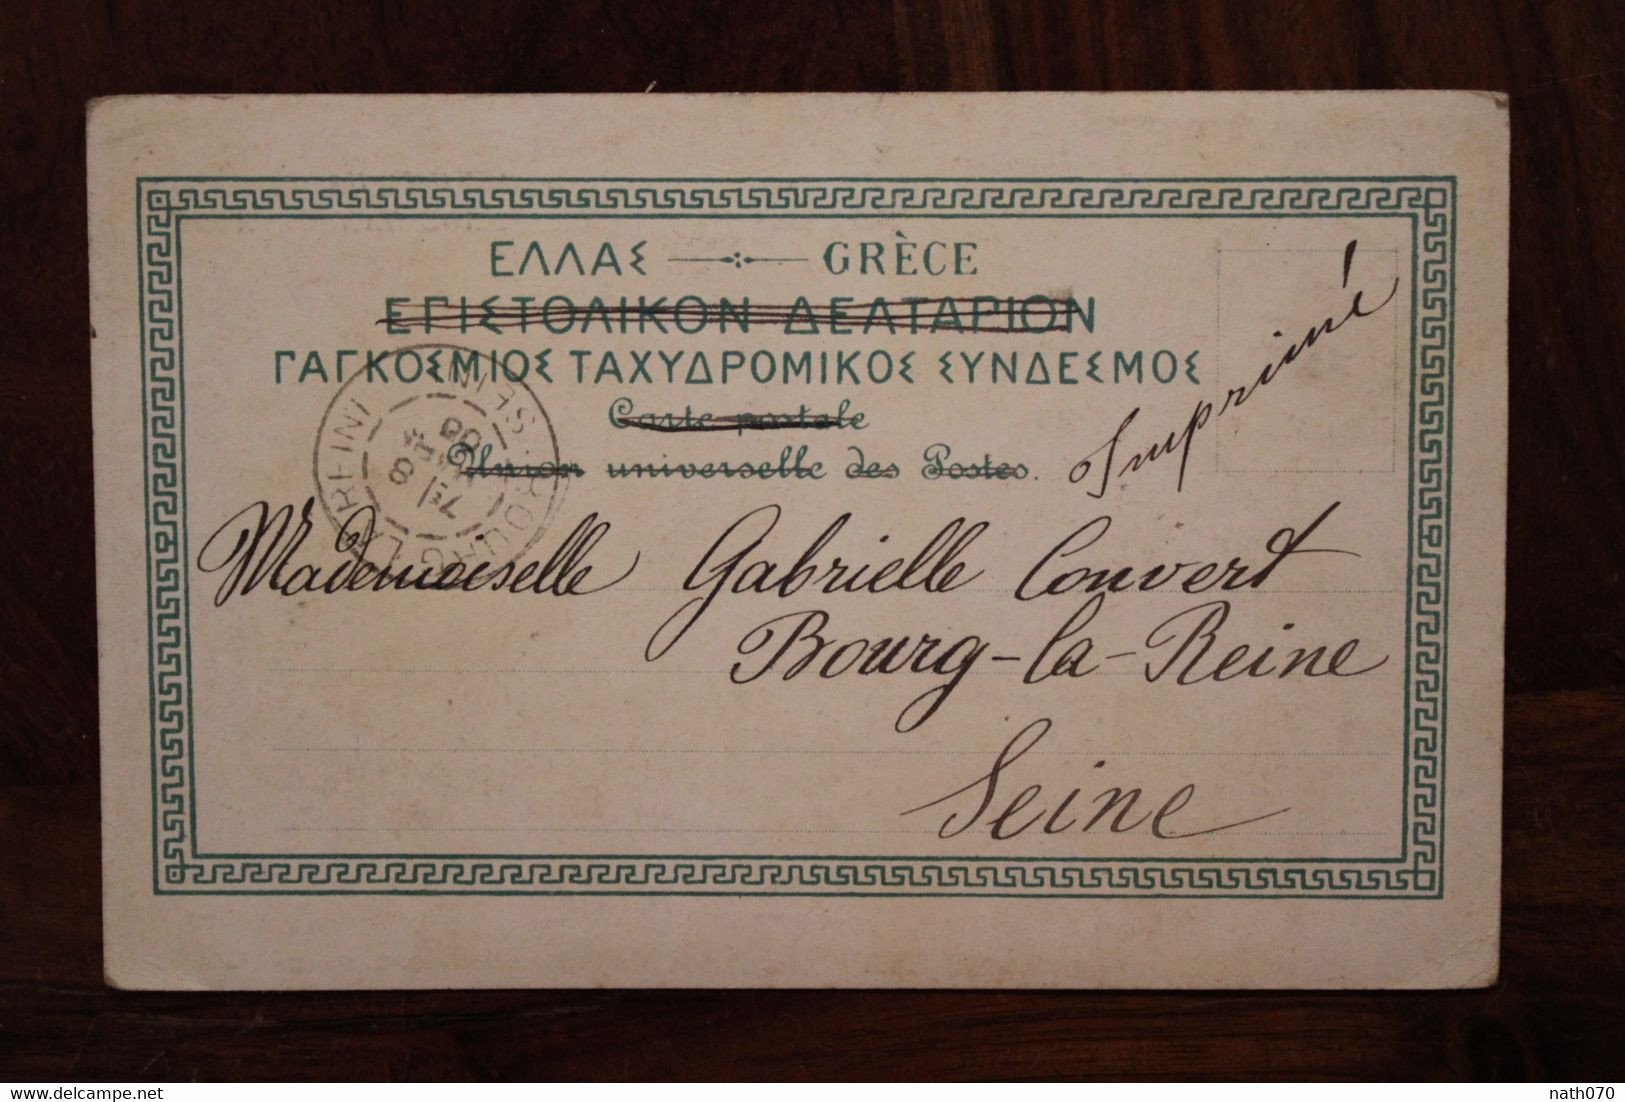 ΕΛΛΑΣ GRÈCE
ΕΠΙΣΤΟΛΙΚΟΝ ΔΕΛΤΑΡΙΟΝ
ΠΑΓΚΟΣΜΙΟΣ ΤΑΧΥΔΡΟΜΙΚΟΣ ΣΥΝΔΕΣΜΟΣ
Carte postale
Union universelle des Postes.
Imprimé
BOURG LA REINE SEINE
Mademoiselle Gabrielle Convert
Bourg-la-Reine
Seine
delcampe.net
nath070